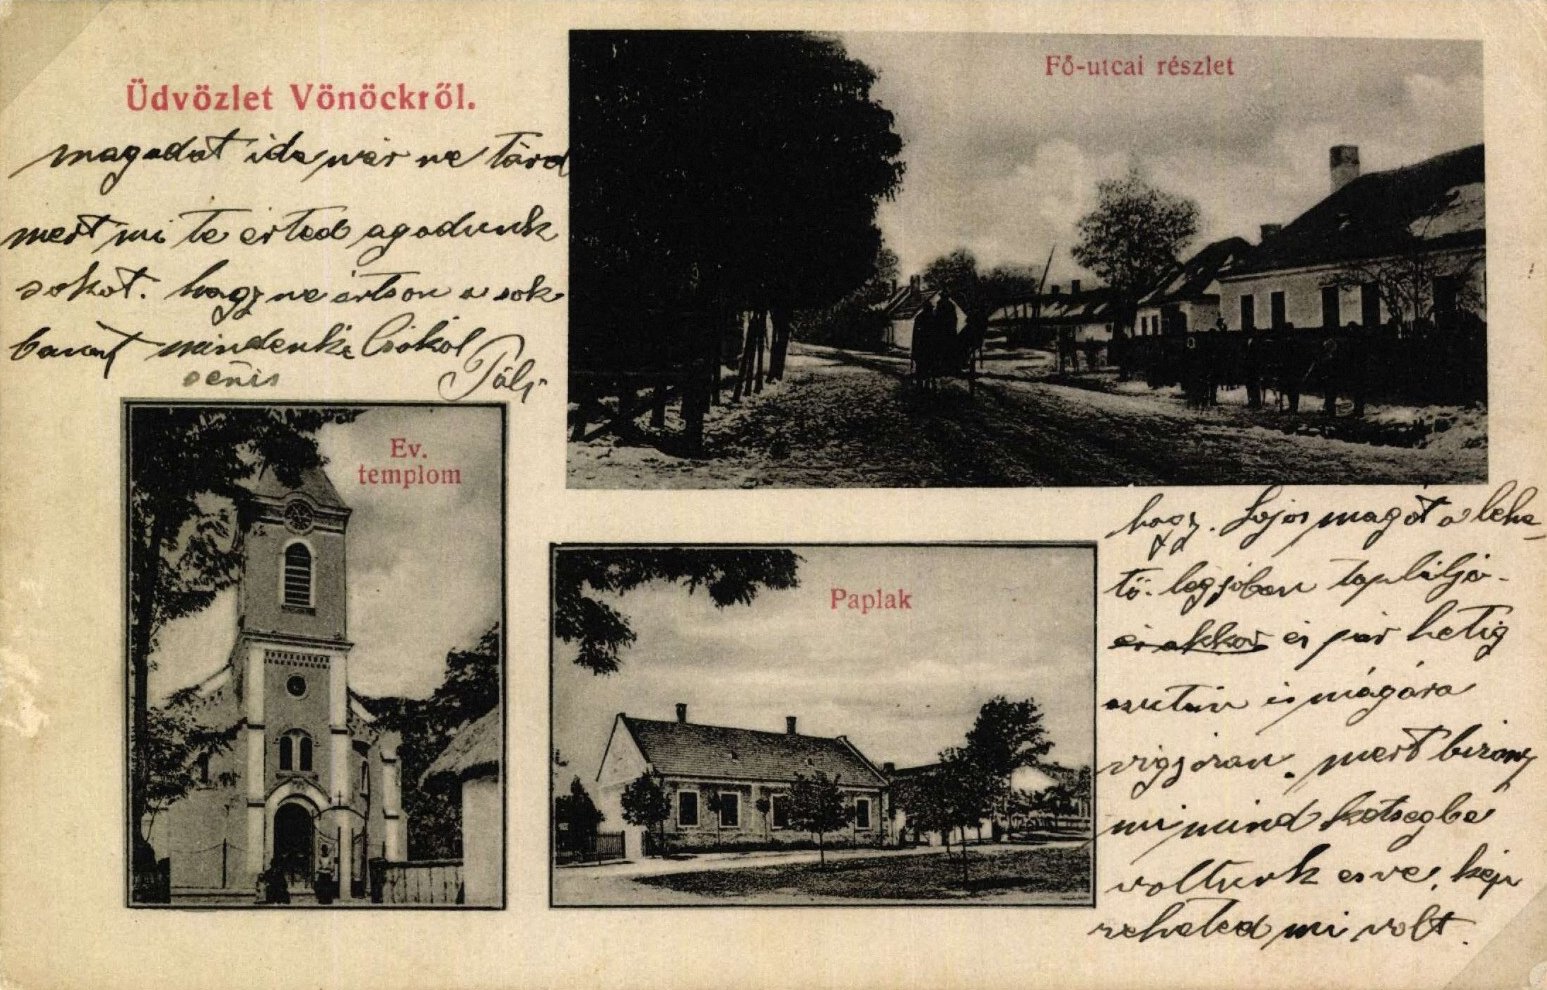 Üdvözlet Vönöckről.
magadat ide már ne tárd
mert mi te érted agodunk
sokat. hagy ne ártson a sok
barát mindenki Csókól
Páli
Fő-utcai részlet
Ev.
templom
Paplak
hagy. Lajos magát a lehe-
tő. legjoban táplálja-
és akkor és pár hetig
azután is magára
vigjázan. mert bizony
mi mind kétségbe
voltunk esve, kép
zeheted mi volt.